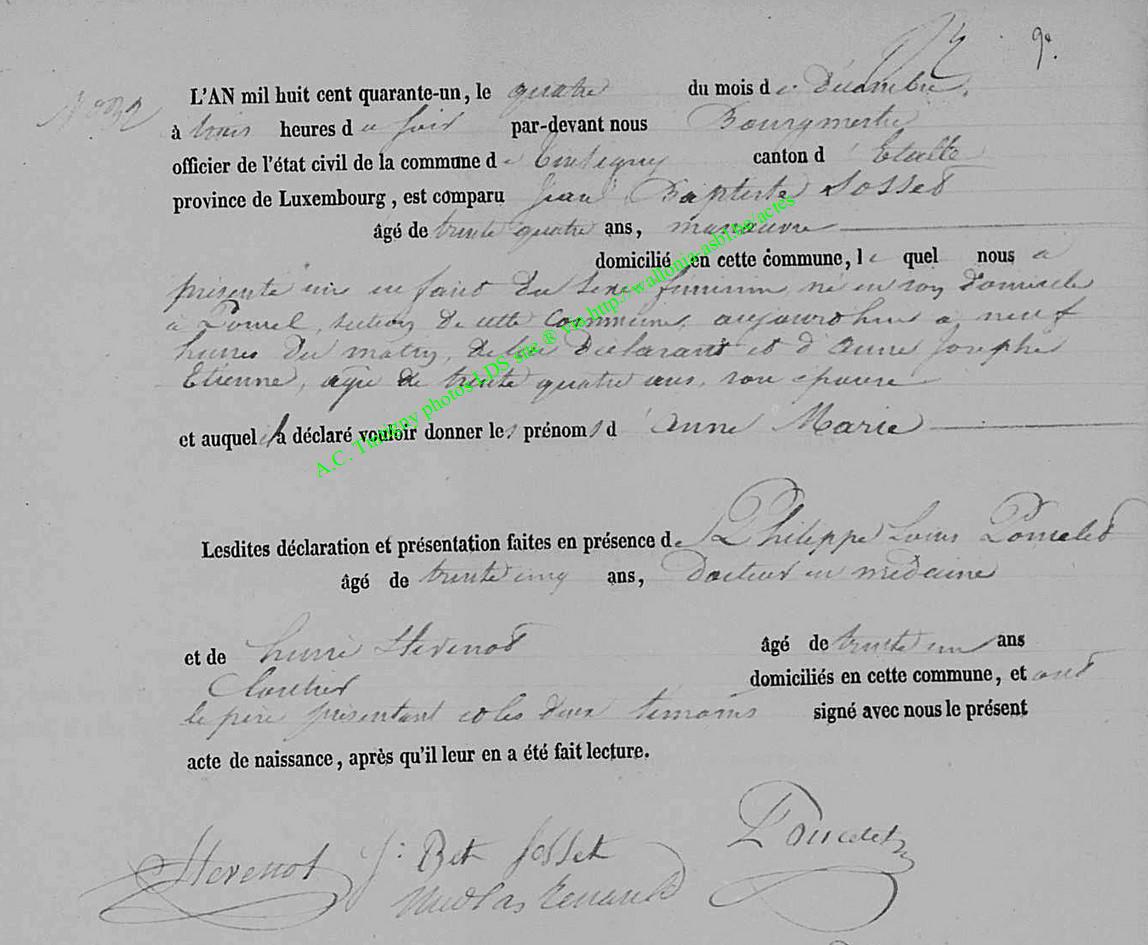 9e.
L'AN mil huit cent quarante-un, le quatre du mois de Décembre,
à trois heures du soir par-devant nous Bourgmestre
officier de l'état civil de la commune de Tintigny canton d'Etalle
province de Luxembourg, est comparu Jean Baptiste Sosset
âgé de trente quatre ans, manœuvre
domicilié en cette commune, lequel nous a
présenté un enfant du sexe féminin né en son domicile
à section de cette commune, aujourdhui à neuf
heures du matin, de lui déclarant et d'Anne Josephe
Etienne, agée de trente quatre ans, son épouse
et auquel il a déclaré vouloir donner les prénoms d'Anne Marie
Lesdites déclaration et présentation faites en présence de Philippe Louis Poncelet
âgé de trente cinq ans, Docteur en médecine
et de henri Hevenot âgé de trente un ans
Cloutier domiciliés en cette commune, et ont
le père présentant et les deux témoins signé avec nous le présent
acte de naissance, après qu'il leur en a été fait lecture.
Hevenot J: Bet Josset Poncelet
Nicolas Renauld
A.C. Tintigny photos LDS site ® via http://wallonia-asbl.be/actes